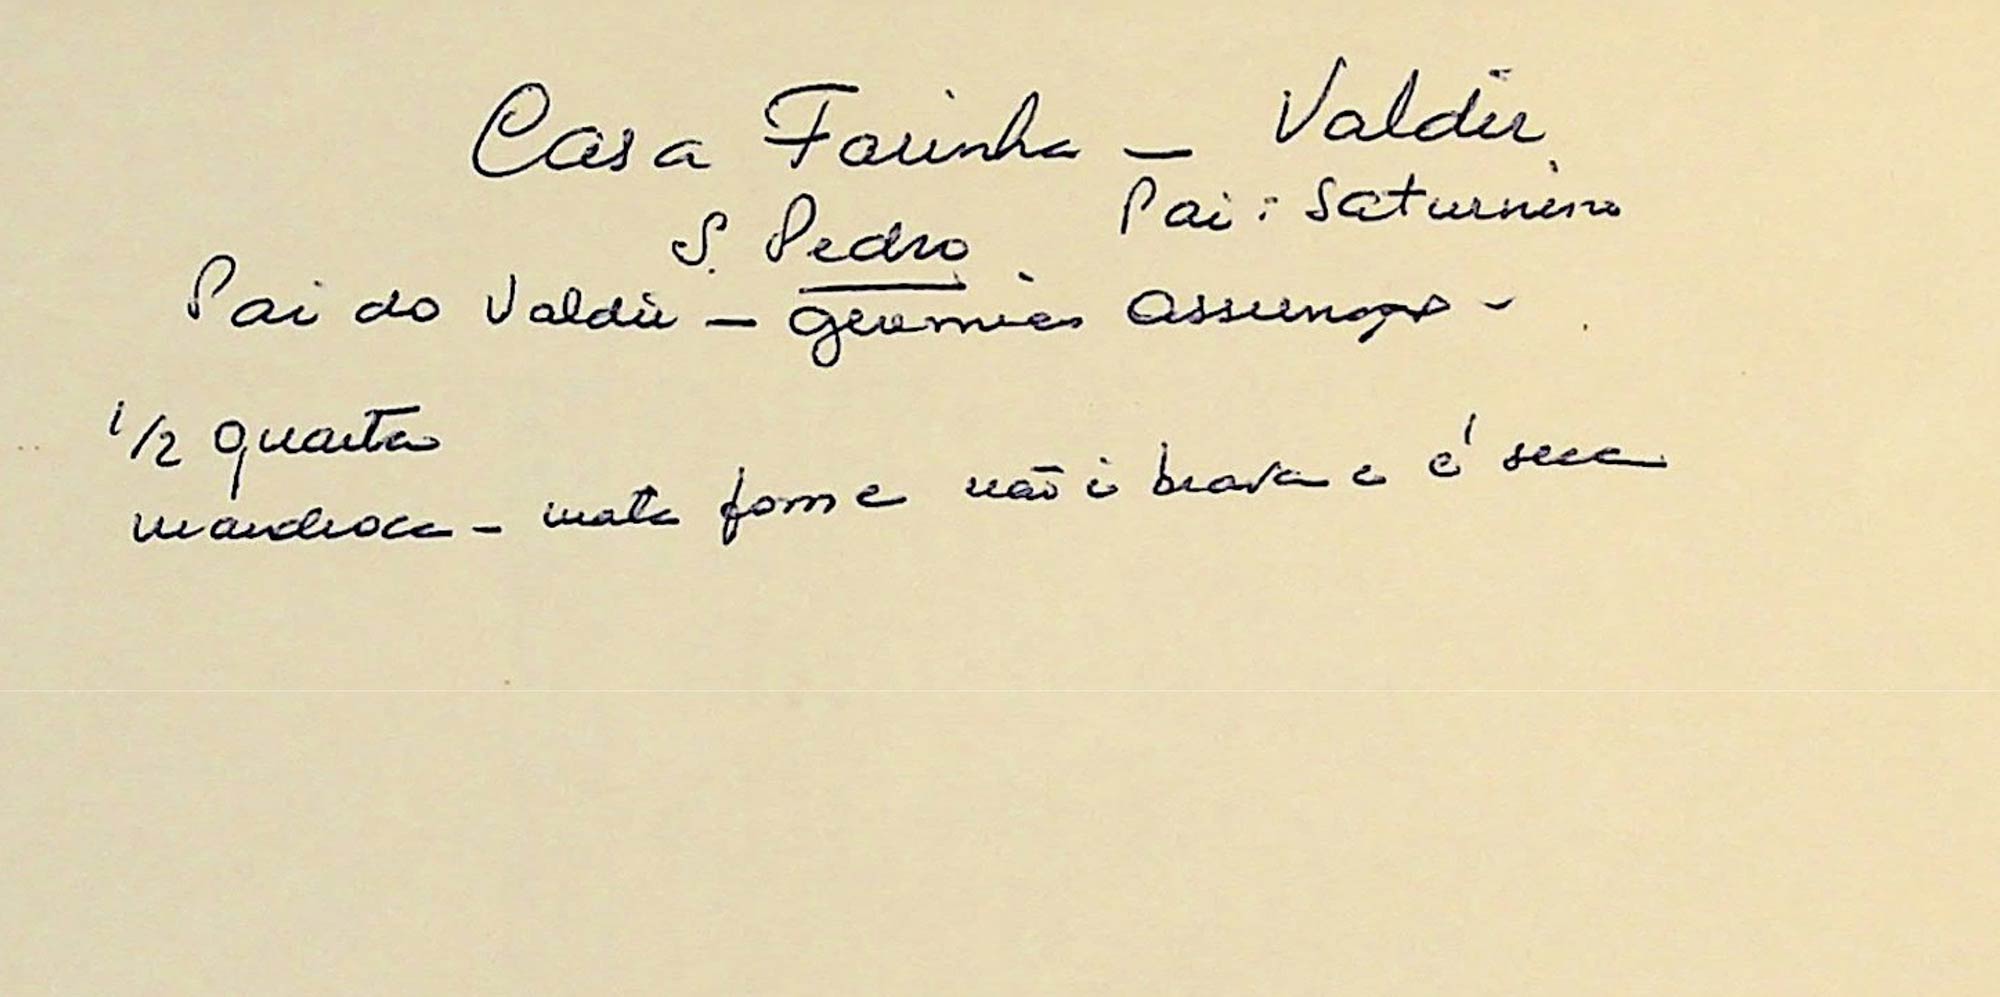 Casa Farinha - Valdir
Pai: Saturnino
S. Pedro
Pai do Valdir - Geremias Assunção -
1/2 quarta
mandioca - mata fome não é brava e é seca